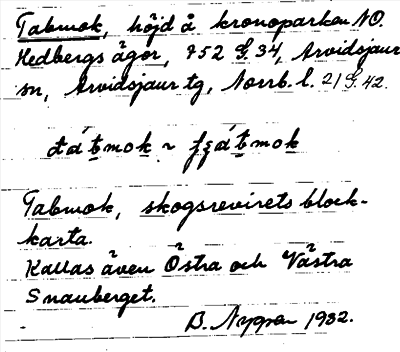 Tabmok, höjd å kronoparken NO.
Hedbergs ägor, 852 G. 34, Arvidsjaur
sn, Arvidsjaur tg, Norrb. l. 21 G. 42.
Tabmok, skogsrevirets block-
karta.
Kallas även Östra och Västra
Snauberget.
B. Nygren 1932.